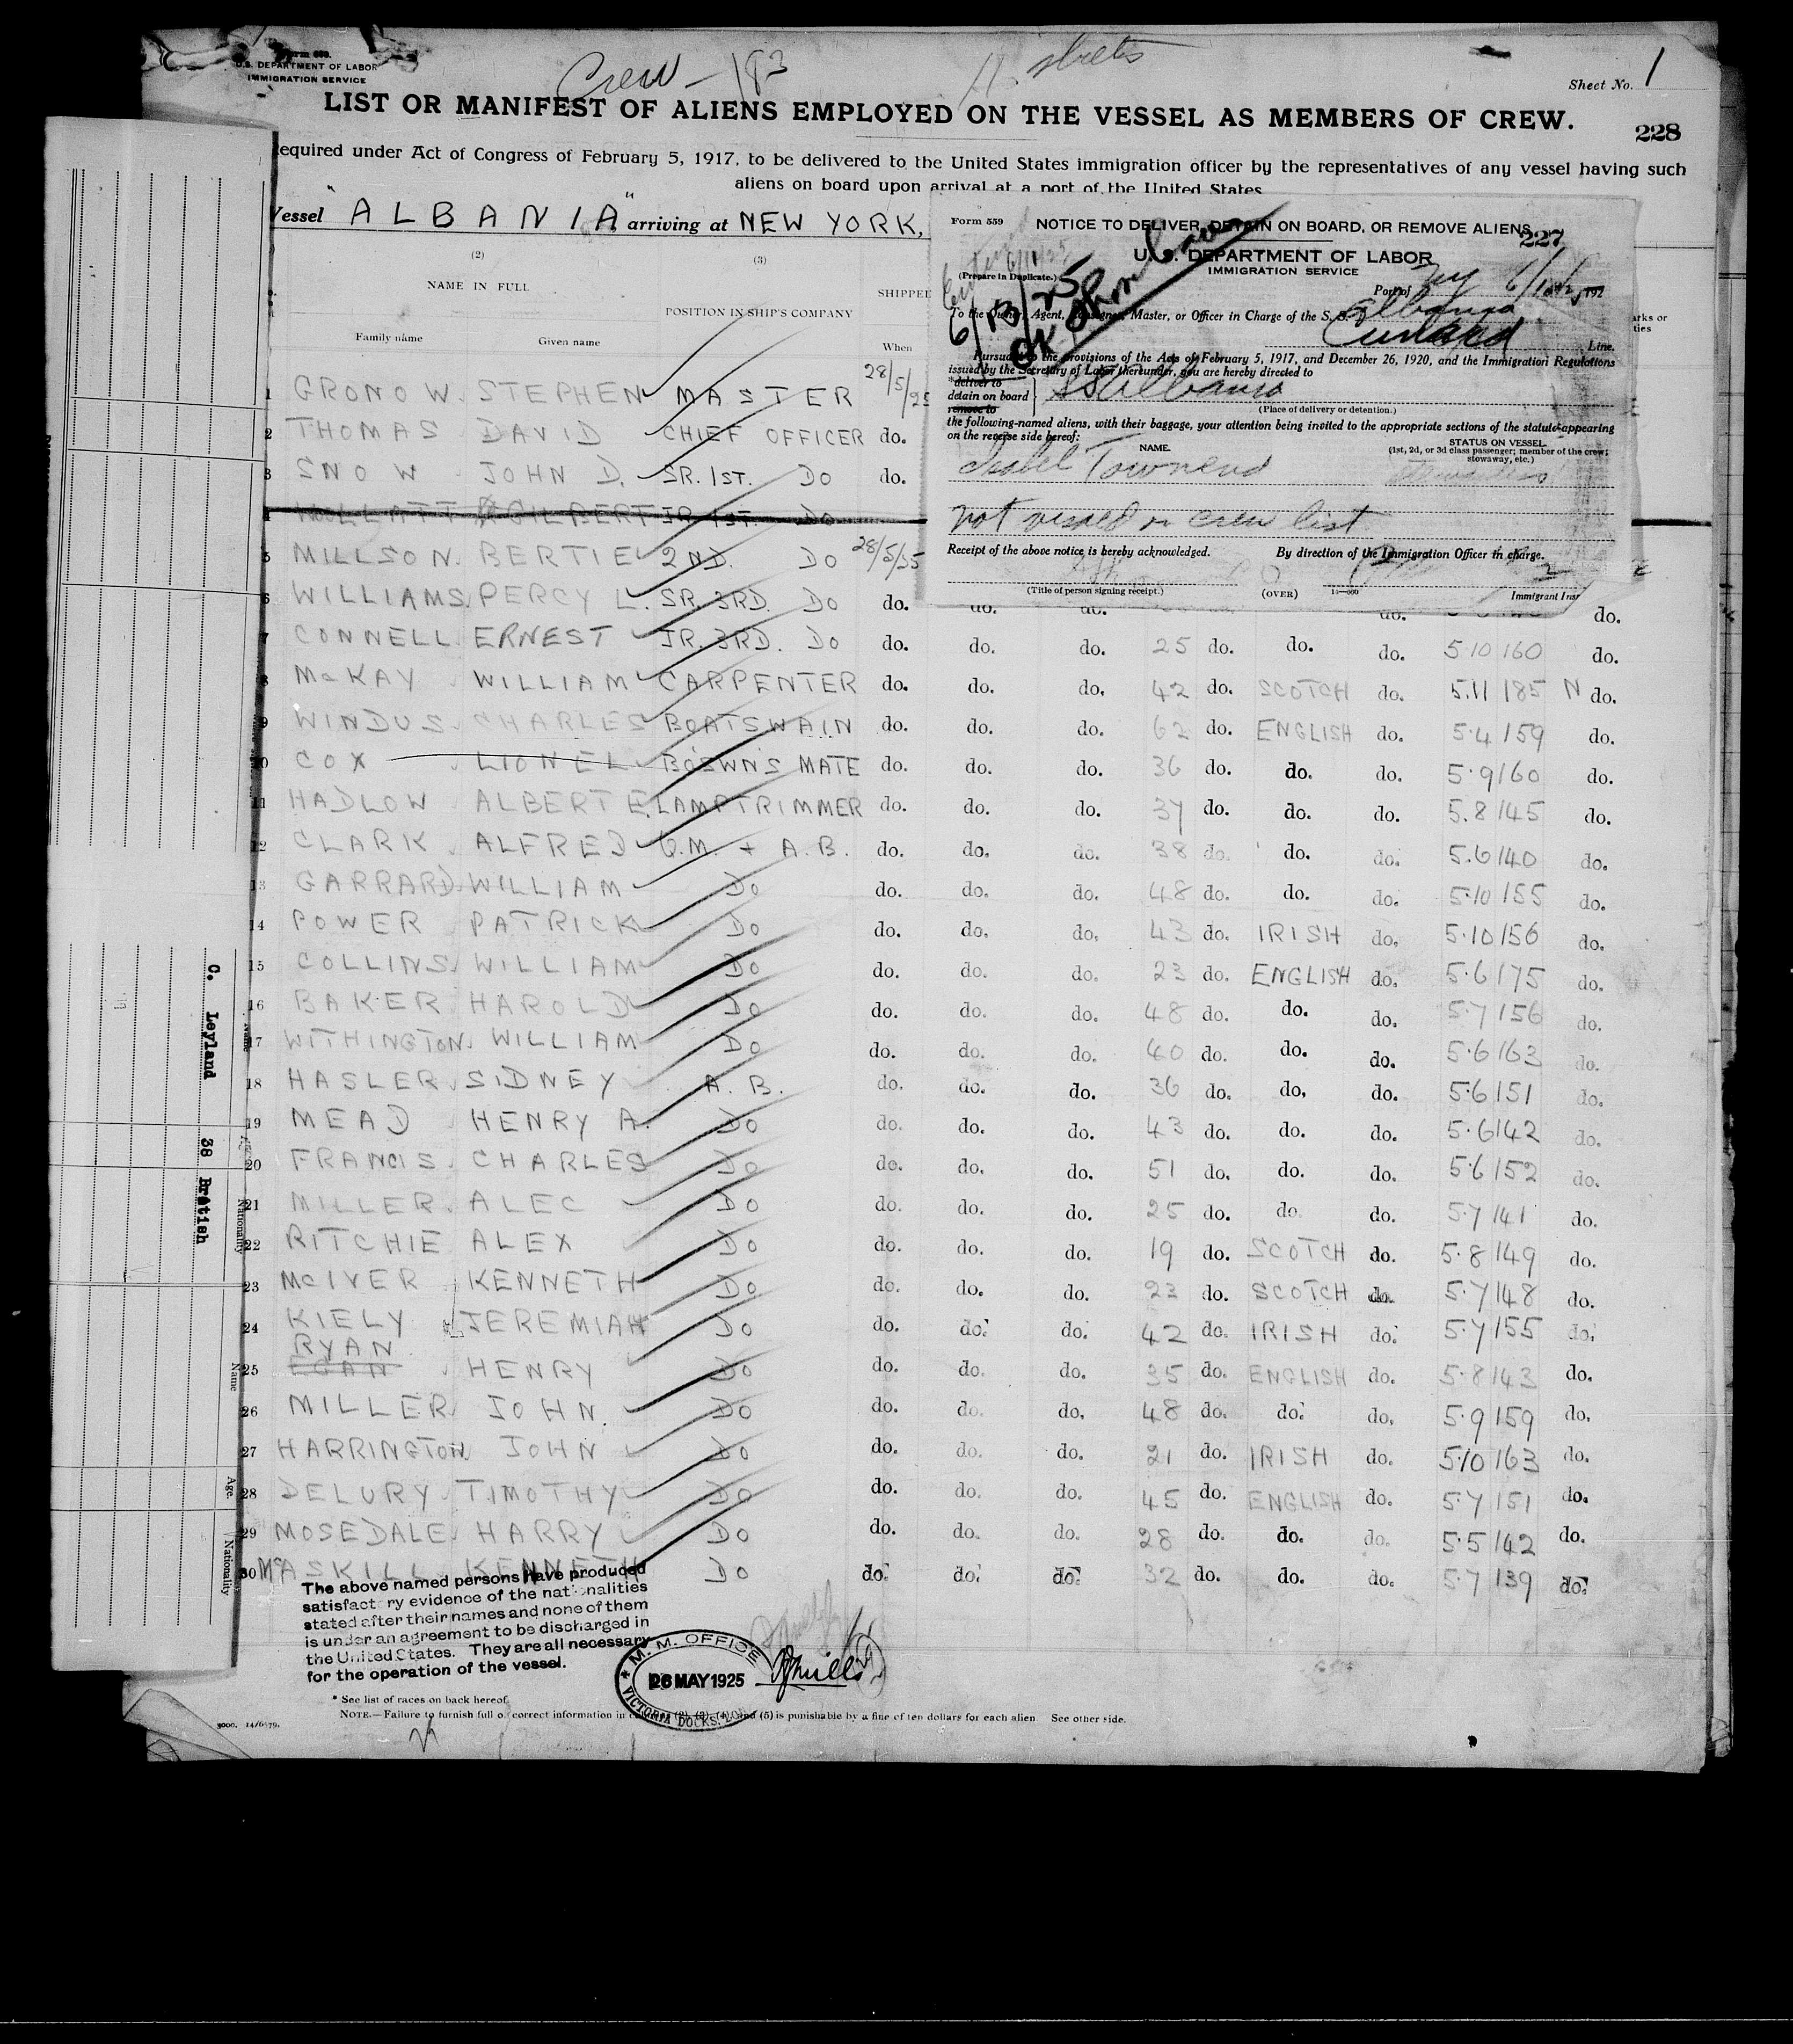 Form 689.
U.S. DEPARTMENT OF LABOR
IMMIGRATION SERVICE
Crew - 183
11 sheets
Sheet No. 1
LIST OR MANIFEST OF ALIENS EMPLOYED ON THE VESSEL AS MEMBERS OF CREW.
228
equired under Act of Congress of February 5, 1917, to be delivered to the United States immigration officer by the representatives of any vessel having such
aliens on board upon arrival at a port of the United States
Vessel "ALBANIA" arriving at NEW YORK,
(2) (3)
NAME IN FULL
POSITION IN SHIP'S COMPANY
SHIPPED
Family name Given name When
Form 559 NOTICE TO DELIVER, DETAIN ON BOARD, OR REMOVE ALIENS
227
U. S. DEPARTMENT OF LABOR
IMMIGRATION SERVICE
(Prepare in Duplicate.)
Port of NY 192
6/13/25
OK
To the Owner, Agent, Consignee, Master, or Officer in Charge of the S. S. Albania
Cunard Line.
Pursuant to the provisions of the Acts of February 5, 1917, and December 26, 1920, and the Immigration Regulations
issued by the Secretary of Labor thereunder, you are hereby directed to
deliver to
detain on board
remove to
SS Albania
(Place of delivery or detention.)
the following-named aliens, with their baggage, your attention being invited to the appropriate sections of the statute appearing
on the reverse side hereof:
NAME. STATUS ON VESSEL.
(1st, 2d, or 3d class passenger; member of the crew;
stowaway, etc.)
Isabel Townend
not visaed on crew list
Receipt of the above notice is hereby acknowledged. By direction of the Immigration Officer in charge.
(Title of person signing receipt.) (OVER) Immigrant Insp
arks or
ties
1 GRONOW STEPHEN MASTER 28/5/25
2 THOMAS DAVID CHIEF OFFICER do.
3 SNOW JOHN D. SR. 1ST. DO do.
4 GILBERT JR 1ST. DO
5 MILLSON BERTIE 2ND. DO 28/5/25
6 WILLIAMS PERCY L. SR. 3RD. DO do. do. do. do. do.
7 CONNELL ERNEST JR. 3RD. DO do. do. do. 25 do. do. do. 5 10 160 do.
8 McKAY WILLIAM CARPENTER do. do. do. 42 do. SCOTCH do. 5.11 185 N do.
9 WINDUS CHARLES BOATSWAIN do. do. do. 62 do. ENGLISH do. 5.4 159 do.
10 COX LIONEL BOSWN'S MATE do. do. do. 36 do. do. do. 5.9 160 do.
11 HADLOW ALBERT E. LAMPTRIMMER do. do. do. 37 do. do. do. 5.8 145 do.
12 CLARK ALFRED Q.M. + A.B. do. do. do. 38 do. do. do. 5.6 140 do.
13 GARRARD WILLIAM DO do. do. do. 48 do. do. do. 5.10 155 do.
14 POWER PATRICK DO do. do. do. 43 do. IRISH do. 5.10 156 do.
15 COLLINS WILLIAM DO do. do. do. 23 do. ENGLISH do. 5.6 175 do.
16 BAKER HAROLD DO do. do. do. 48 do. do. do. 5.7 156 do.
17 WITHINGTON WILLIAM DO do. do. do. 40 do. do. do. 5.6 163 do.
18 HASLER SIDNEY A.B. do. do. do. 36 do. do. do. 5.6 151 do.
19 MEAD HENRY A. DO do. do. do. 43 do. do. do. 5.6 142 do.
20 FRANCIS CHARLES DO do. do. do. 51 do. do. do. 5.6 152 do.
21 MILLER ALEC DO do. do. do. 25 do. do. do. 5.7 141 do.
22 RITCHIE ALEX DO do. do. do. 19 do. SCOTCH do. 5.8 149 do.
23 McIVER KENNETH DO do. do. do. 23 do. SCOTCH do. 5.7 148 do.
24 KIELY JEREMIAH DO do. do. do. 42 do. IRISH do. 5.7 155 do.
RYAN
25 EGAN HENRY DO do. do. do. 35 do. ENGLISH do. 5.8 143 do.
26 MILLER JOHN DO do. do. do. 48 do. do. do. 5.9 159 do.
27 HARRINGTON JOHN DO do. do. do. 21 do. IRISH do. 5.10 163 do.
28 DELURY TIMOTHY DO do. do. do. 45 do. ENGLISH do. 5.7 151 do.
29 MOSEDALE HARRY DO do. do. do. 28 do. do. do. 5.5 142 do.
30 McASKILL KENNETH DO do. do. do. 32 do. do. do. 5.7 139 do.
The above named persons have produced
satisfactory evidence of the nationalities
stated after their names and none of them
is under an agreement to be discharged in
the United States. They are all necessary
for the operation of the vessel.
M. M. OFFICE
26 MAY 1925
VICTORIA DOCKS.
* See list of races on back hereof.
NOTE.—Failure to furnish full or correct information in columns (2), (3), (4) and (5) is punishable by a fine of ten dollars for each alien. See other side.
3000. 14/6579.
C. Leyland 38 British
Nationality
Name
Age.
Nationality